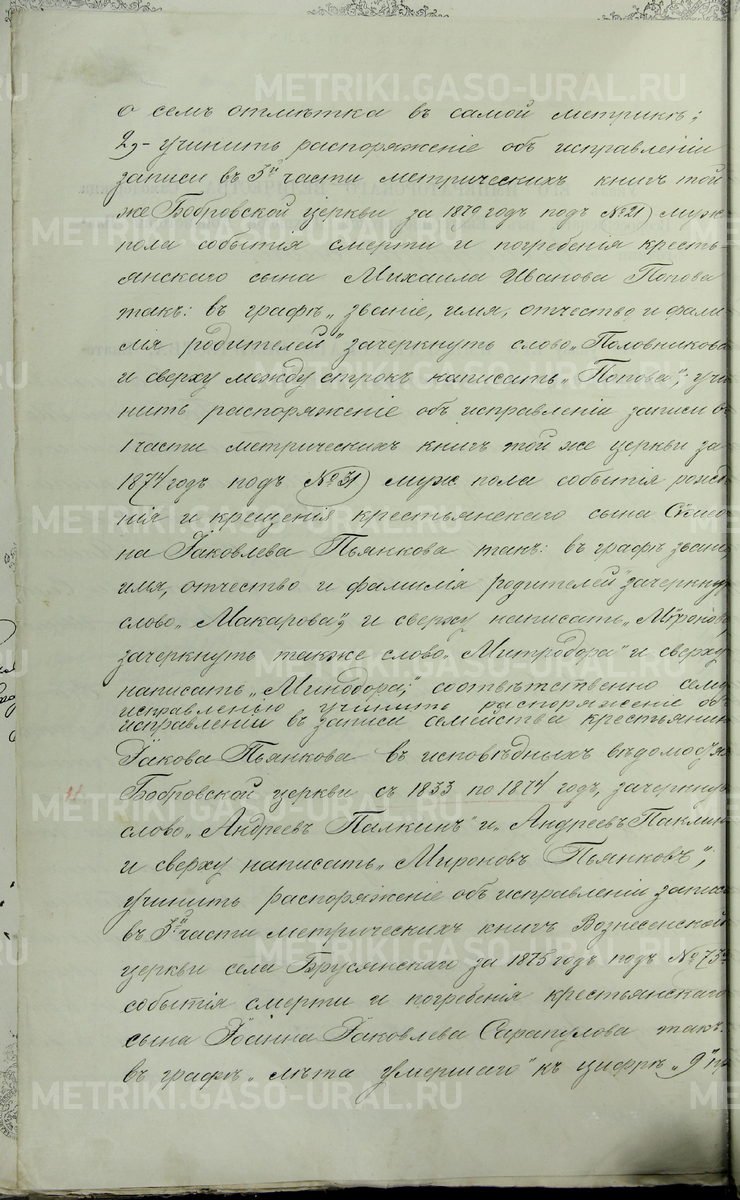 о семъ отмѣтка въ самой метрикѣ;
2,- учинить распоряженіе объ исправленіи
записи въ 3й части метрическихъ книгъ той
же Бобровской церкви за 1879 годъ подъ №21) муж.
пола событія смерти и погребенія кресть-
янскаго сына Михаила Иванова Попова
такъ: въ графѣ „званіе, имя, отчество и фами
лія родителей" зачеркнуть слово „Половникова
и сверху между строкъ написать „Попова"; учи
нить распоряженіе объ исправленіи записи въ
1 части метрическихъ книгъ той же церкви за
1874 годъ подъ №31) муж. пола событія рожде
нія и крещенія крестьянскаго сына Симео
на Іаковлева Пьянкова такъ: въ графѣ званіе,
имя, отчество и фамилія родителей" зачеркнут
слово „Макарова", и сверху написать „Миронова
зачеркнуть также слово „Митродора" и сверху
написать „Минодора"; соотвѣтственно сему
исправленью учинить распоряженіе объ
исправленіи въ записи семейства крестьянина
Іакова Пьянкова въ исповѣдныхъ вѣдомостя
Бобровской церкви съ 1833 по 1874 годъ, зачеркнув
слово „Андреевъ Палкинъ" и „Андреевъ Паклин
и сверху написать „Мироновъ Пьянковъ";
учинить распоряженіе объ исправленіи записи
въ 3й части метрическихъ книгъ Вознесенской
церкви села Брусянскаго за 1875 годъ подъ №75мъ
событія смерти и погребенія крестьянскаго
сына Іоанна Іаковлева Сарапулова такъ:
въ графѣ „лѣта умершаго" къ цифрѣ „9" пр
METRIKI.GASO-URAL.RU